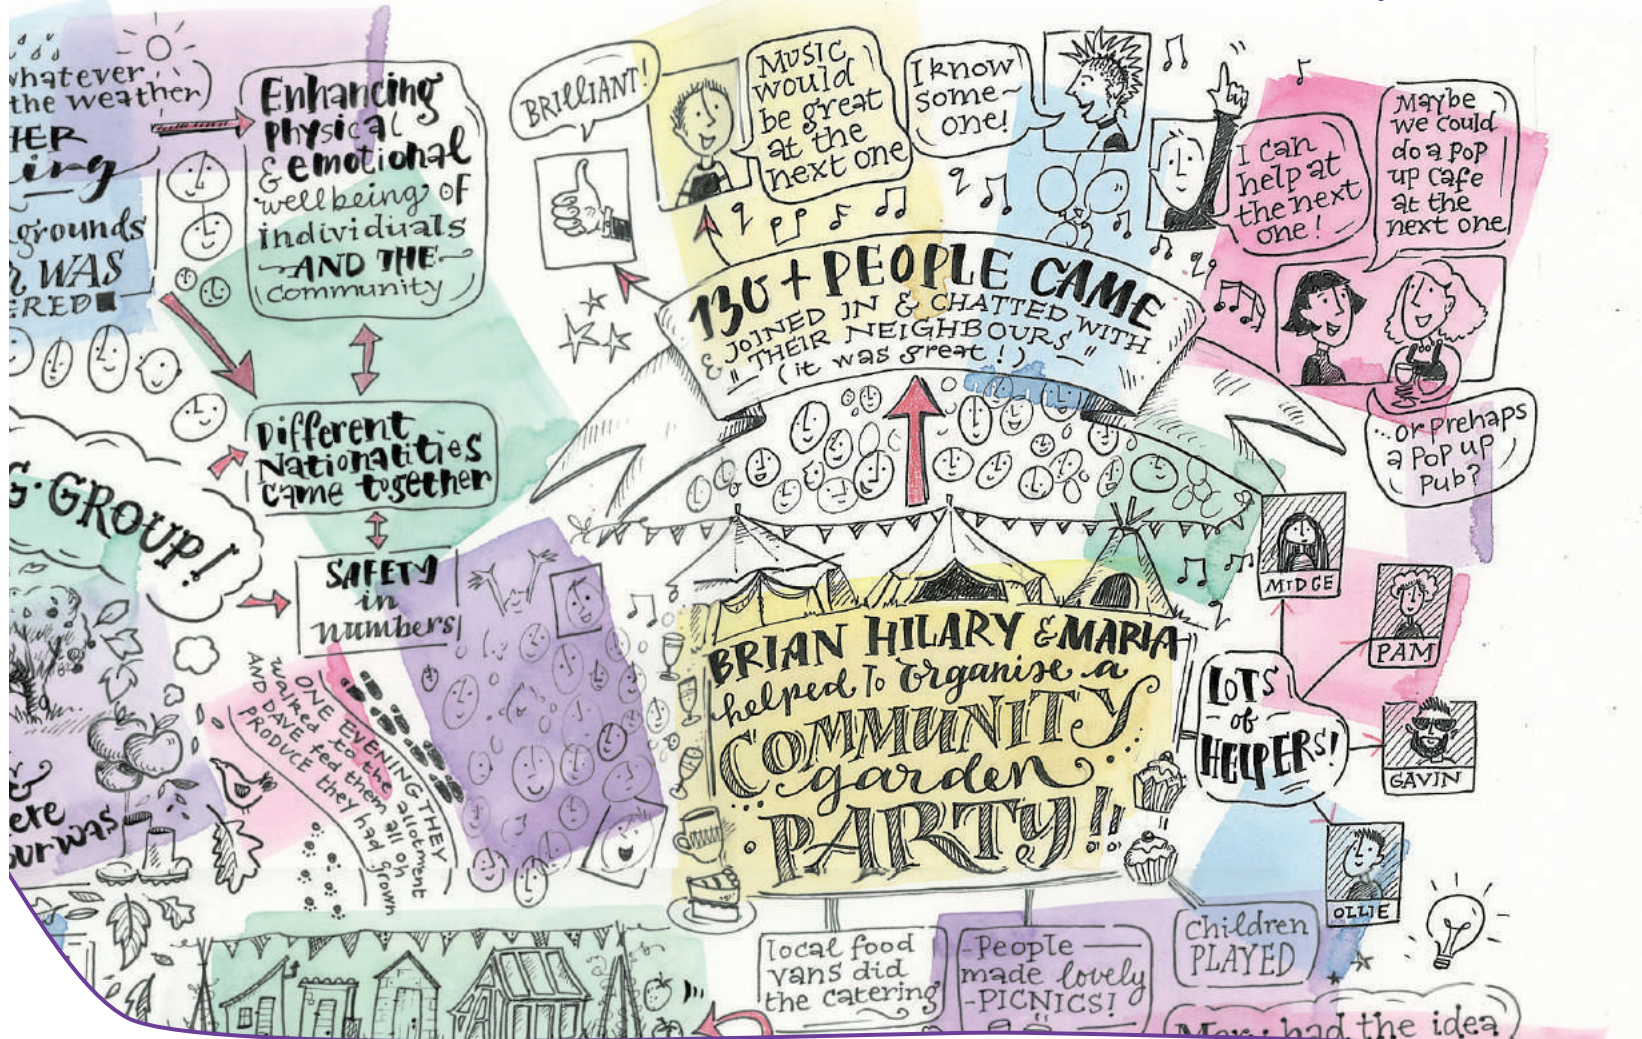 whatever
the weather
HER
ing
grounds
WAS
ERED
Enhancing
physical
& emotional
wellbeing of
individuals
AND THE
community
Different
Nationalities
came together
SAFETY
in
numbers
G. GROUP!
ONE EVENING THEY
walked to the allotment
AND DAVE fed them all on
PRODUCE they had grown
ere
our was
BRILLIANT!
MUSIC
would
be great
at the
next one
I know
some~
one!
I can
help at
the next
one!
Maybe
we could
do a pop
up cafe
at the
next one
...or prehaps
a pop up
pub?
130+ PEOPLE CAME
& JOINED IN & CHATTED WITH
"THEIR NEIGHBOURS"
(it was great!)
BRIAN HILARY & MARIA
helped to organise a
COMMUNITY
garden
PARTY!!
LOTS
of
HELPERS!
MIDGE
PAM
GAVIN
OLLIE
local food
vans did
the catering
-People
made lovely
-PICNICS!
children
PLAYED
Mary had the idea